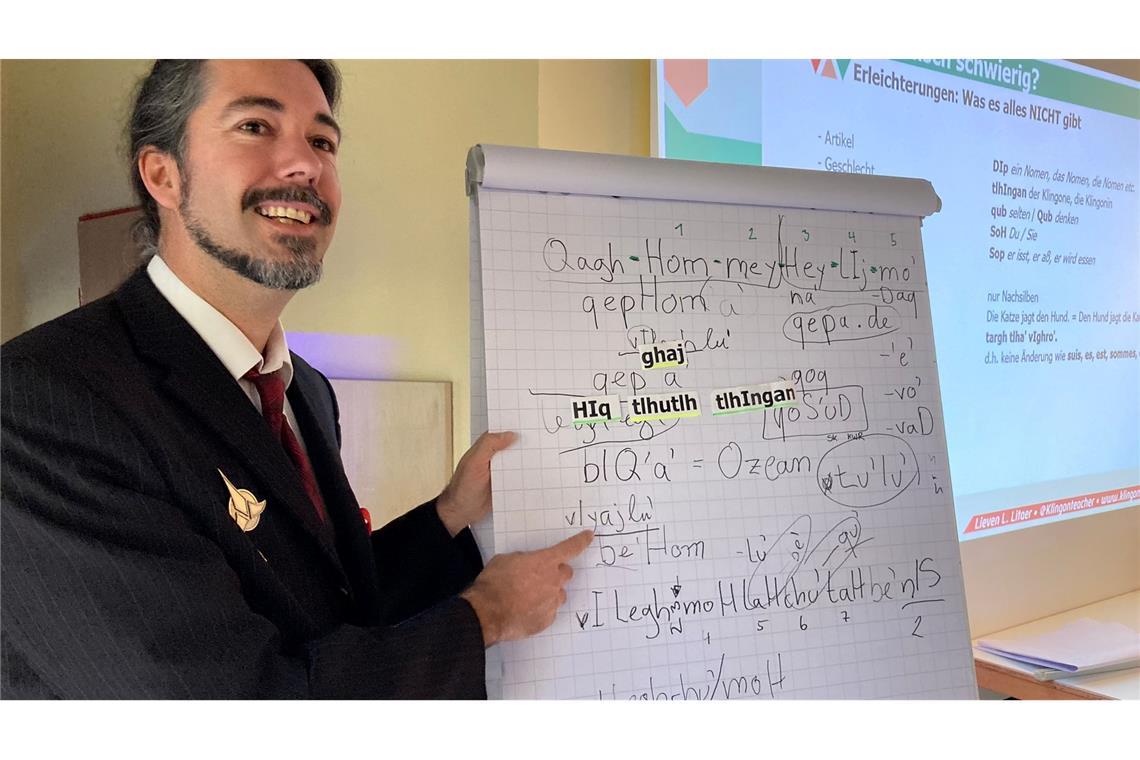 schwierig?
Erleichterungen: Was es alles NICHT gibt
- Artikel
- Geschlecht
DIp ein Nomen, das Nomen, die Nomen etc.
tlhIngan der Klingone, die Klingonin
qub selten / Qub denken
SoH Du / Sie
Sop er isst, er aß, er wird essen
nur Nachsilben
Die Katze jagt den Hund. = Den Hund jagt die
targh tlha' vIghro'.
d.h. keine Änderung wie suis, es, est, sommes,
Lieven L. Litaer • @Klingonteacher • www.klingon
1 2 3 4 5
Qagh-Hom-mey-Hey-lIj-mo'
qepHom'a' na -Daq
qepa.de
ghaj
-'e'
qep'a' gog
-vo'
HIq tlhutlh tlhIngan
qoS'uD
-vaD
bIQ'a' = Ozean
tu'lu'
vIyajlu'
be'Hom -lu'
vILegh moHlaHchu'taHbe'nIS
4 5 6 7 2